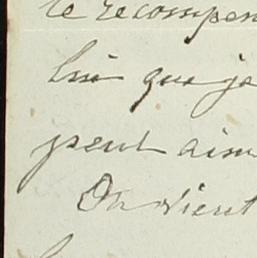 te récompen
lui que je
peut aim
On vient